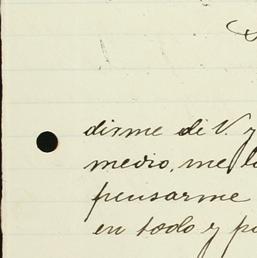 disme di V. y
medio, me l
pensarme
en todo y p